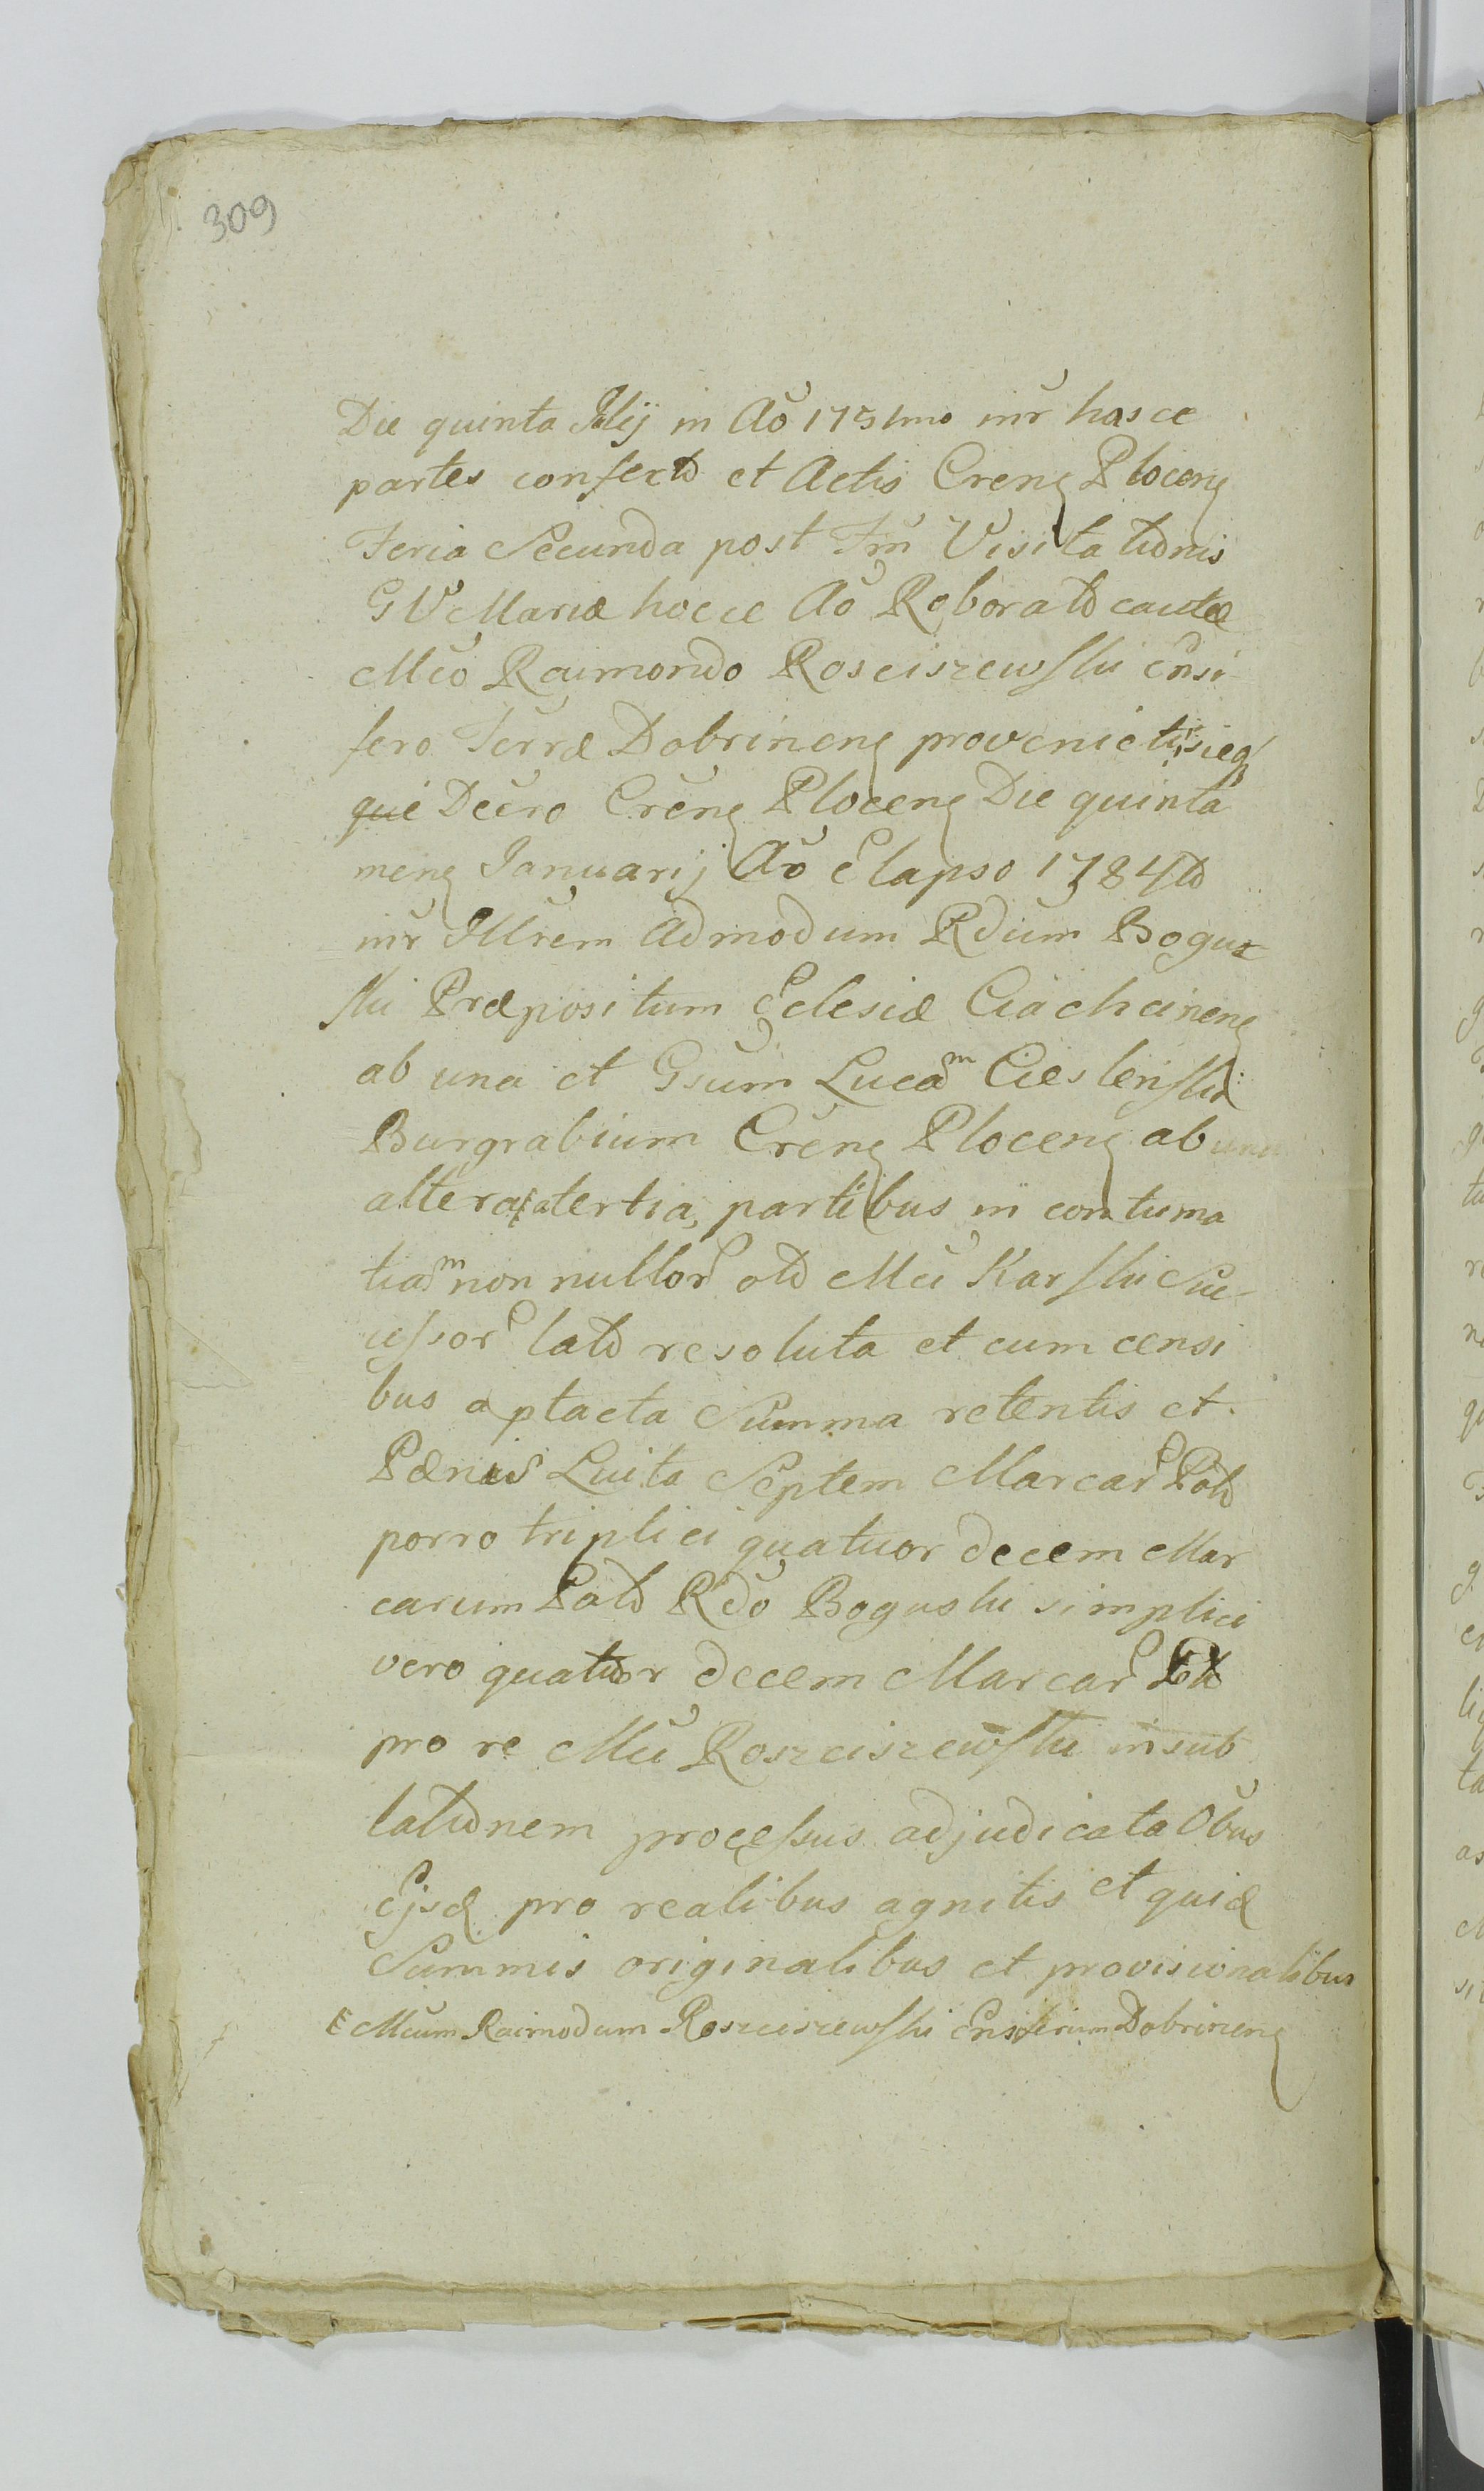 309
Die quinta Julij in Aõ 1751mo inr̃ hasce
partes confecto et Actis Creng Ploceng
Feria Secunda post Fm̃ Visitationis
GV Mariæ hocce Aõ Roborato cautæ
Mcõ Raimondo Rosciszewski Ensi
fero Terræ Dobrineng provenict sicq
que Decro Creng Ploceng Die quinta
meng Januarij Aõ Elapso 1784to
inr̃ Illrem Admodum Rdum Bogus
ski Præpositum Eclesiæ Ciachcineng
ab una et Gsum Lucam Cieslenski
Burgrabium Creng Ploceng ab una
altera a tertia, partibus in contuma
tiam non nullor̃ olo Mci Karski Suc-
cessor̃ lato resoluta et cum censi
bus a ptacta Summa retentis et
Pænis Luita Septem Marcar̃ Polo
porro triplici quatuor decem Mar
carum Polo Rdõ Boguski simplici
vero quatuor decem Marcar̃
pro re Mci Roszciszewski in sub
lationem processus adjudicata Obus
Ejsd pro realibus agnitis et quid
Summis originalibus et provisionalibus
E Mcum Raimodum Roszciszewski Ensiferum Dobrineng